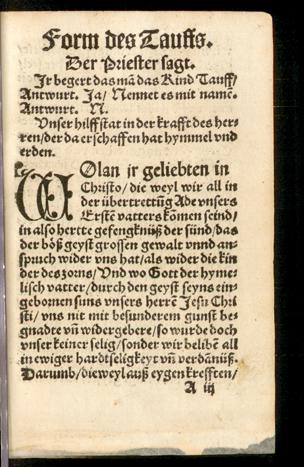 Form des Tauffs.
Der Priester sagt.
Jr begert das mā das Kind Tauff/
Antwurt. Ja/ Nennet es mit namē.
Antwurt. N.
Vnser hilff stat in der krafft des her-
ren/der da erschaffen hat hymmel vnd
erden.
WOlan jr geliebten in
Christo/die weyl wir all in
der übertrettūg Ade vnsers
Erstē vatters kōmen seind/
in also hertte gefengknüß der sünd/das
der böß geyst grossen gewalt vnnd an-
spruch wider vns hat/als wider die kin
der des zorns/Vnd wo Gott der hyme-
lisch vatter/durch den geyst seyns ein-
gebornen suns vnsers herrē Jesu Chri
sti/vns nit mit besunderem gunst be-
gnadte vñ widergebere/so wurde doch
vnser keiner selig/sonder wir belibē all
in ewiger hardtseligkeyt vñ verdānüß.
Darumb/die weyl auß eygen krefften/
A iij